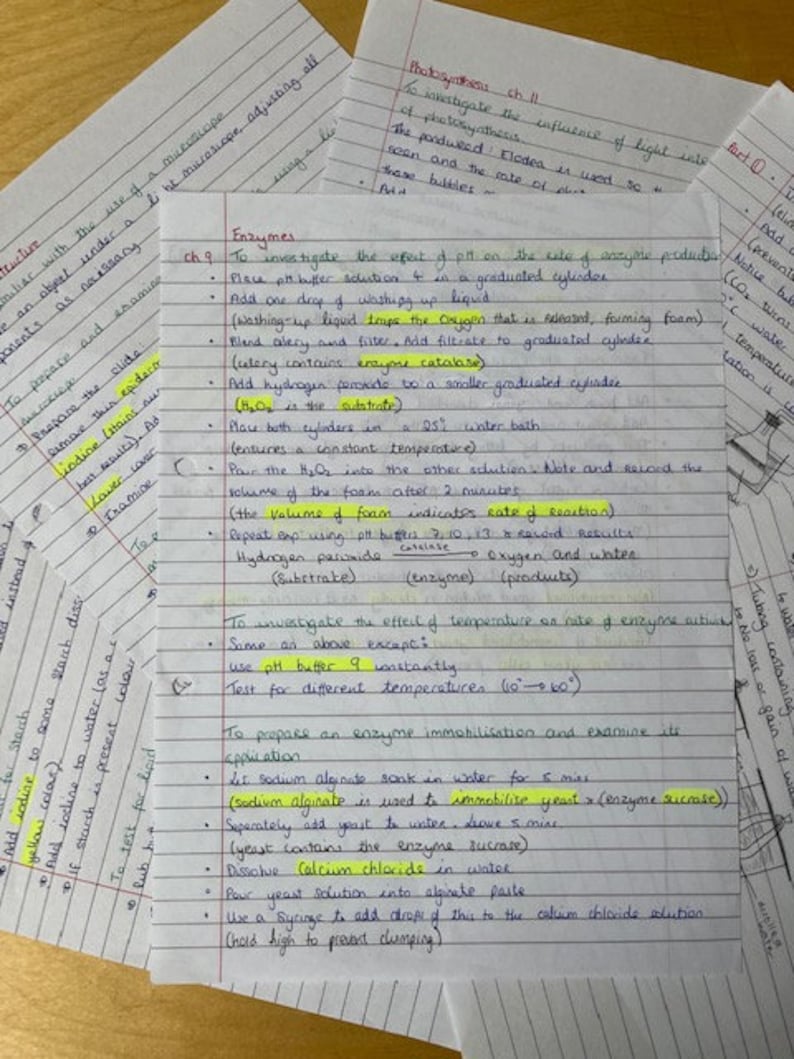 Enzymes
ch 9 To investigate the effect of pH on the rate of enzyme productio
• Place pH buffer solution 4 in a graduated cylinder
• Add one drop of washing up liquid
(washing-up liquid traps the oxygen that is released, forming foam)
• Blend celery and filter. Add filtrate to graduated cylinder
(celery contains enzyme catalase)
• Add hydrogen peroxide to a smaller graduated cylinder
(H₂O₂ is the substrate)
• Place both cylinders in a 25° water bath
(entures a constant temperature)
• Pour the H₂O₂ into the other solution. Note and record the
volume of the foam after 2 minutes
(the volume of foam indicates rate of reaction)
• Repeat exp using pH buffers 7, 10, 13 & record results
Hydrogen peroxide catalase → oxygen and water
(substrate) (enzyme) (products)
To investigate the effect of temperature on rate of enzyme activit
• Same as above except:
use pH buffer 9 constantly
Test for different temperatures (10° → 60°)
To prepare an enzyme immobilisation and examine its
application
• Let sodium alginate soak in water for 5 mins
(sodium alginate is used to immobilise yeast & (enzyme sucrase))
• Seperately add yeast to water. Leave 5 mins
(yeast contains the enzyme sucrase)
• Dissolve calcium chloride in water
• Pour yeast solution into alginate paste
• Use a syringe to add drops of this to the calcium chloride solution
(hold high to prevent clumping)
Photosynthesis ch 11
To investigate the influence of light inte
of photosynthesis.
The pondweed: Elodea is used so
seen and the rate of
these bubbles
• Add
Part ①
• Add
(prevent
• Notice bub
(CO₂ turns
°C water
temperature
ructure
miliar with the use of a microscope
an object under a light microscope, adjusting all
ponents as necessary
using a li
To prepare and examine
microscop
Prepare the slide:
remove thin epiderm
iodine (stains
best results). Ad
Lower cover
Examine
instead of
for starch
Add iodine to some starch diss
yellow colour)
Add iodine to water (as a c
If starch is present colour
To test for lipid
Rub
Tubing containing
No loss or gain of wa
distilled
water